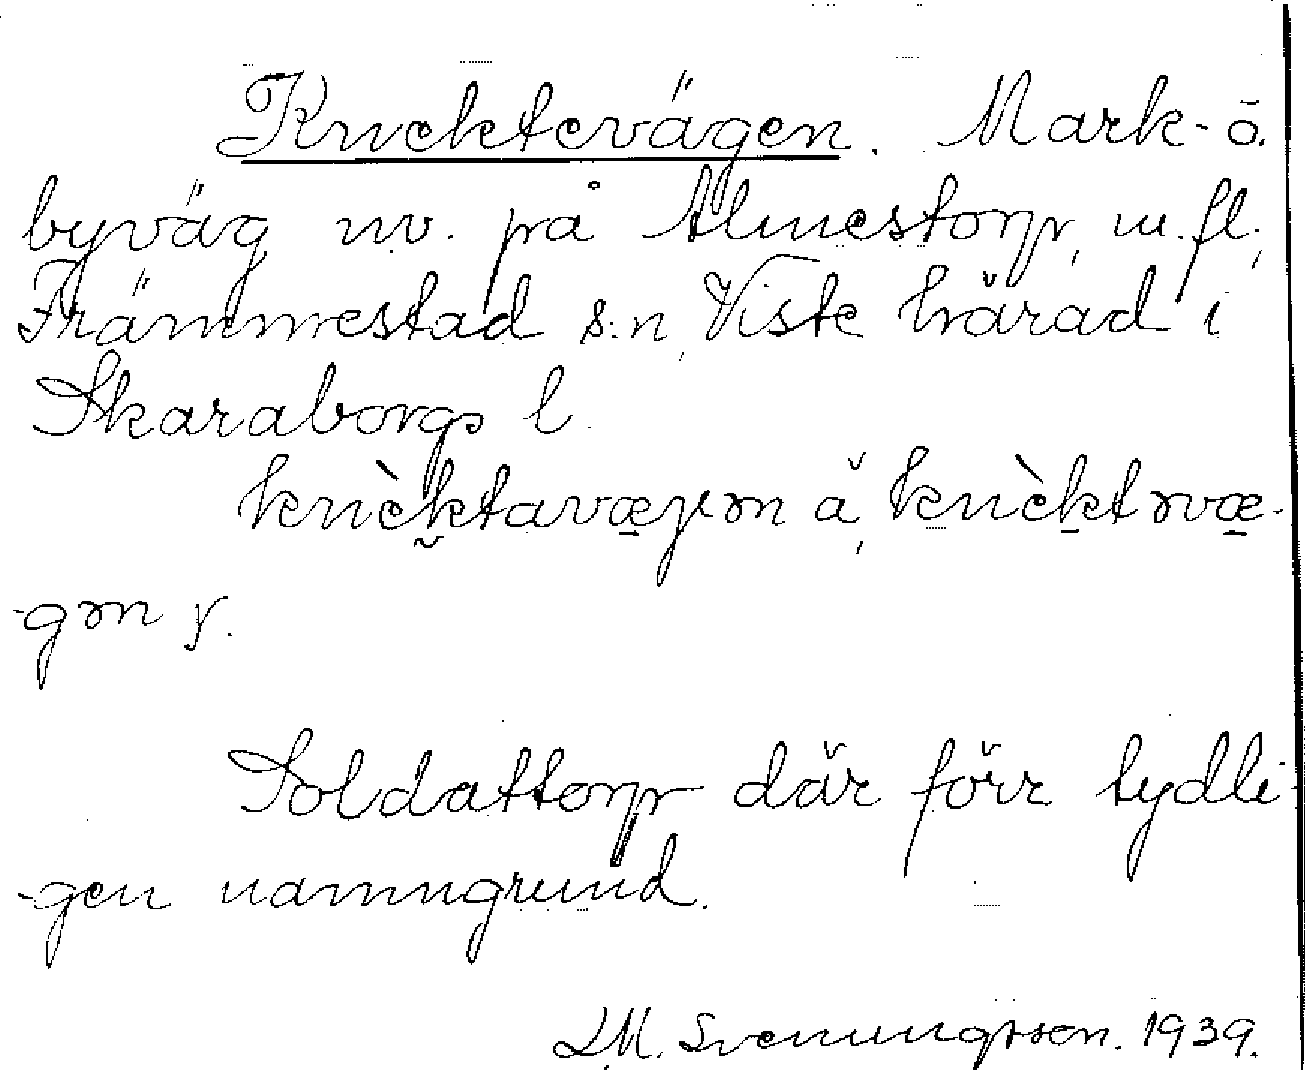 Knektevägen. Mark- o.
byväg nv. på Almestorp, m.fl.,
Främmestad s:n, Viste härad i
Skaraborgs l.
knèktavægən å, knèktəvæ-
-gən r.
Soldattorp där förr tydli-
-gen namngrund.
LM. Svenungsson. 1939.